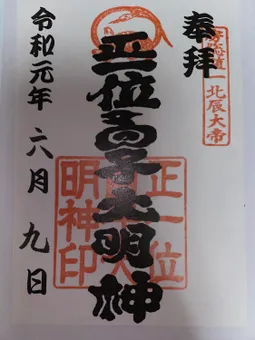 奉拝
北辰大帝
正一位 大明神
正一位
明神印
令和元年 六月 九日